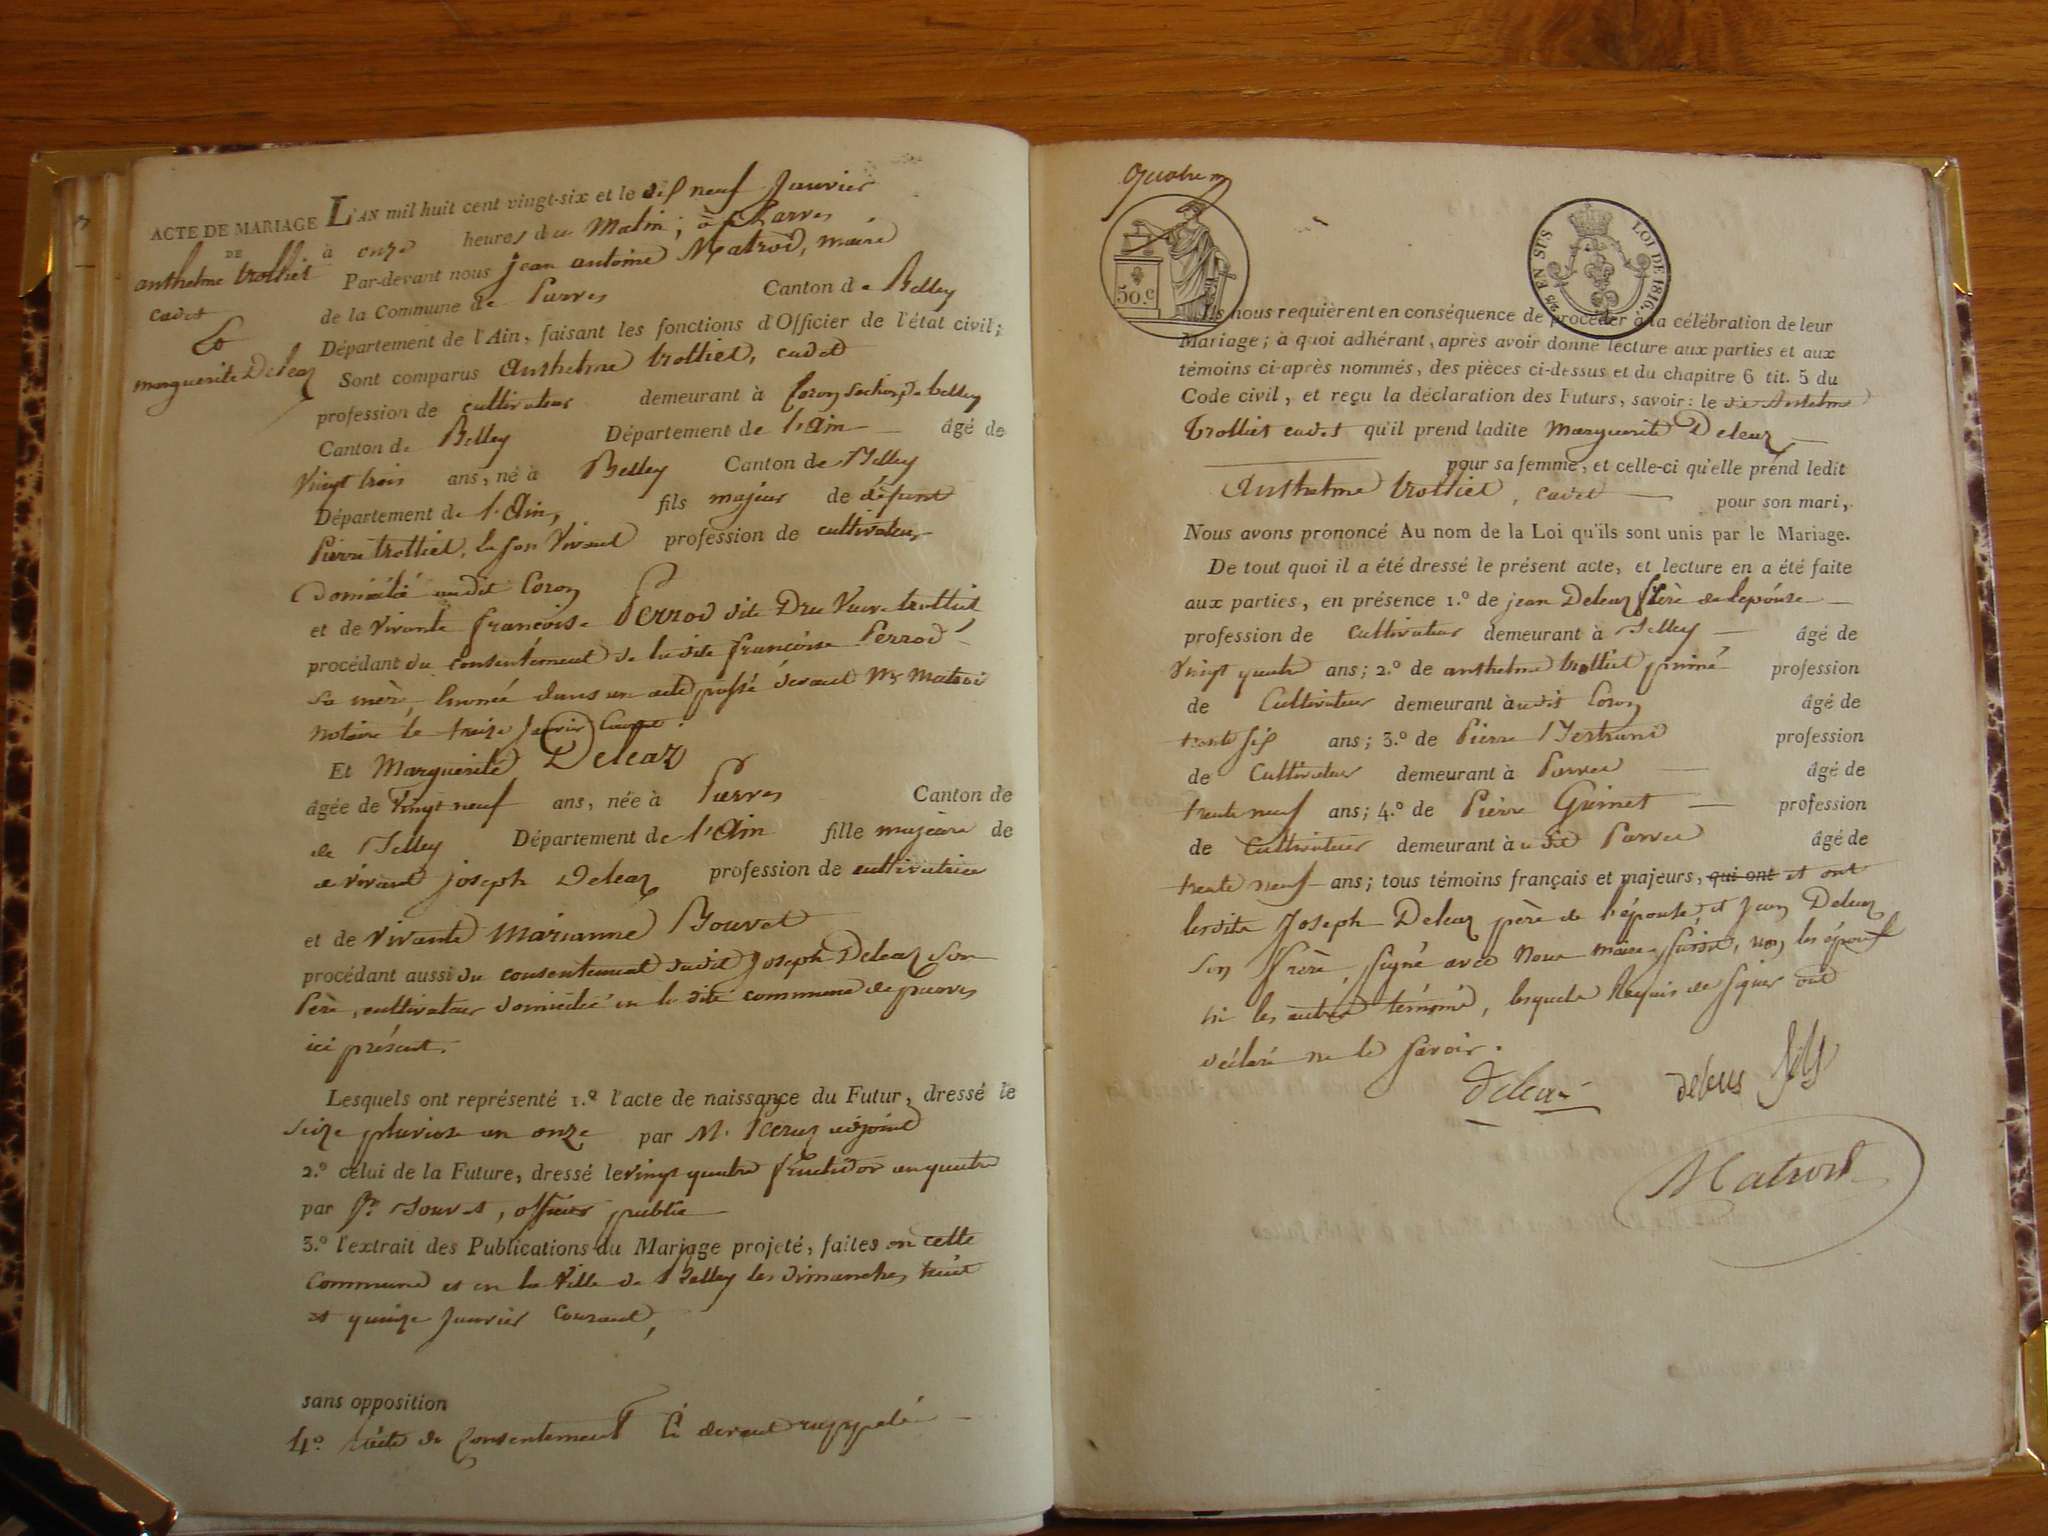 ACTE DE MARIAGE
DE
anthelme trolliet
cadet
Et
marguerite Deleaz
L'AN mil huit cent vingt-six et le dix neuf Janvier
à onze heures du Matin, à Parves
Par-devant nous jean antoine Matrod, maire
de la Commune de Parves Canton de Belley
Département de l'Ain, faisant les fonctions d'Officier de l'état civil;
Sont comparus Anthelme trolliet, cadet
profession de cultivateur demeurant à Coron section de belley
Canton de Belley Département de l'Ain âgé de
Vingt trois ans, né à Belley Canton de Belley
Département de l'Ain, fils majeur de défunt
Pierre trolliet, de son Vivant profession de cultivateur
Domicilié audit Coron
et de Vivante françoise Perrod dite Dru Veuve trolliet,
procédant du consentement de la dite françoise Perrod
sa mère, donné dans un acte passé devant Me Matrod
notaire le treize Janvier Courant.
Et Marguerite Deleaz
âgée de Vingt neuf ans, née à Parves Canton de
de Belley Département de l'Ain fille majeure de
de vivant joseph Deleaz profession de cultivatrice
et de Vivante Marianne Bouvet
procédant aussi du consentement dudit Joseph Deleaz son
Père, cultivateur domicilié en la dite commune de parves
ici présent.
Lesquels ont représenté 1.º l'acte de naissance du Futur, dressé le
Seize pluviose an onze par M. adjoint
2.º celui de la Future, dressé le vingt quatre fructidor an quatre
par Bouvet, officier public
3.º l'extrait des Publications du Mariage projeté, faites en cette
Commune et en la Ville de Belley les dimanches huit
et quinze Janvier Courant,
sans opposition
4.º l'acte de Consentement ci devant rappelé
50.c
EN SUS
LOI DE 1816.
Ils nous requièrent en conséquence de procéder à la célébration de leur
Mariage; à quoi adhérant, après avoir donné lecture aux parties et aux
témoins ci-après nommés, des pièces ci-dessus et du chapitre 6 tit. 5 du
Code civil, et reçu la déclaration des Futurs, savoir: le dit Anthelme
Trolliet cadet qu'il prend ladite Marguerite Deleaz
pour sa femme, et celle-ci qu'elle prend ledit
Anthelme trolliet, cadet pour son mari,
Nous avons prononcé Au nom de la Loi qu'ils sont unis par le Mariage.
De tout quoi il a été dressé le présent acte, et lecture en a été faite
aux parties, en présence 1.º de jean Deleaz frère de l'epouse
profession de Cultivateur demeurant à Belley âgé de
Vingt quatre ans; 2.º de anthelme trolliet profession
de Cultivateur demeurant à udit Coron âgé de
trente six ans; 3.º de Pierre Bertrand profession
de Cultivateur demeurant à Parves âgé de
trente neuf ans; 4.º de Pierre Guinet profession
de Cultivateur demeurant à udit Parves âgé de
trente neuf ans; tous témoins français et majeurs, qui ont et ont
lesdits Joseph Deleaz père de l'épouse, et Jean Deleaz
son frère, signé avec Nous maire, non les époux
ni les autres témoins, lesquels Requis de signer ont
déclaré ne le savoir.
deleaz
deleas fils
Matrod